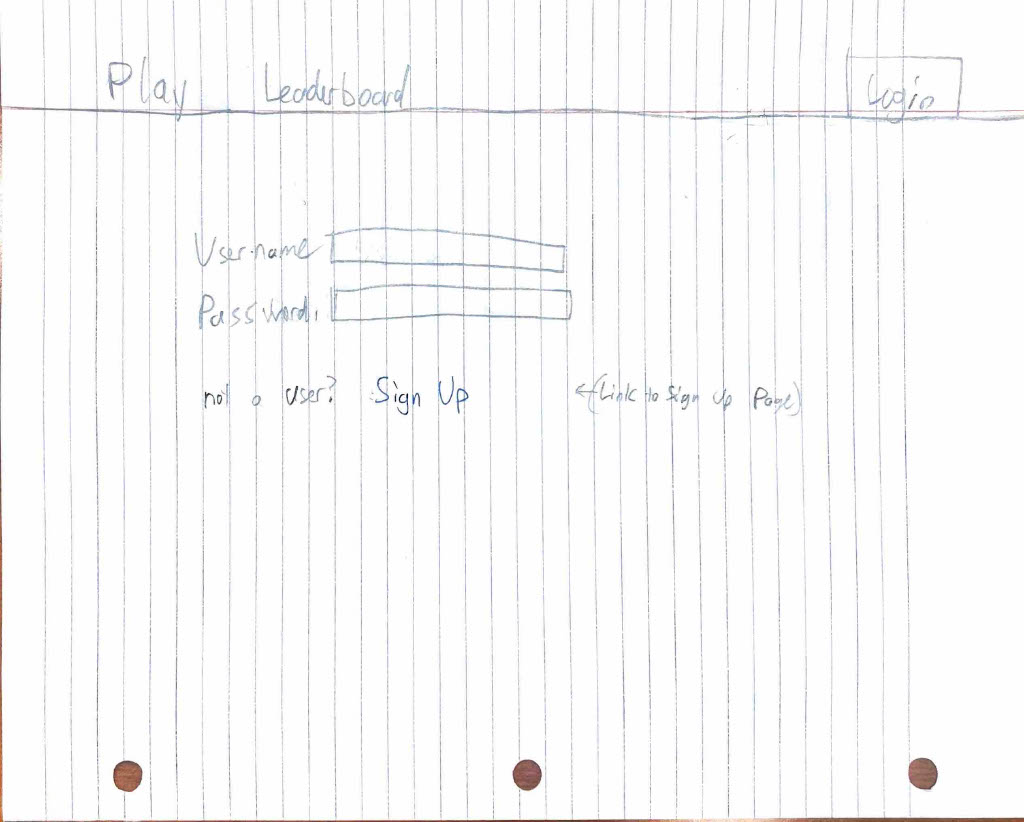 Play Leaderboard Login
Username
Password
not a user? Sign Up ←(Link to Sign Up Page)